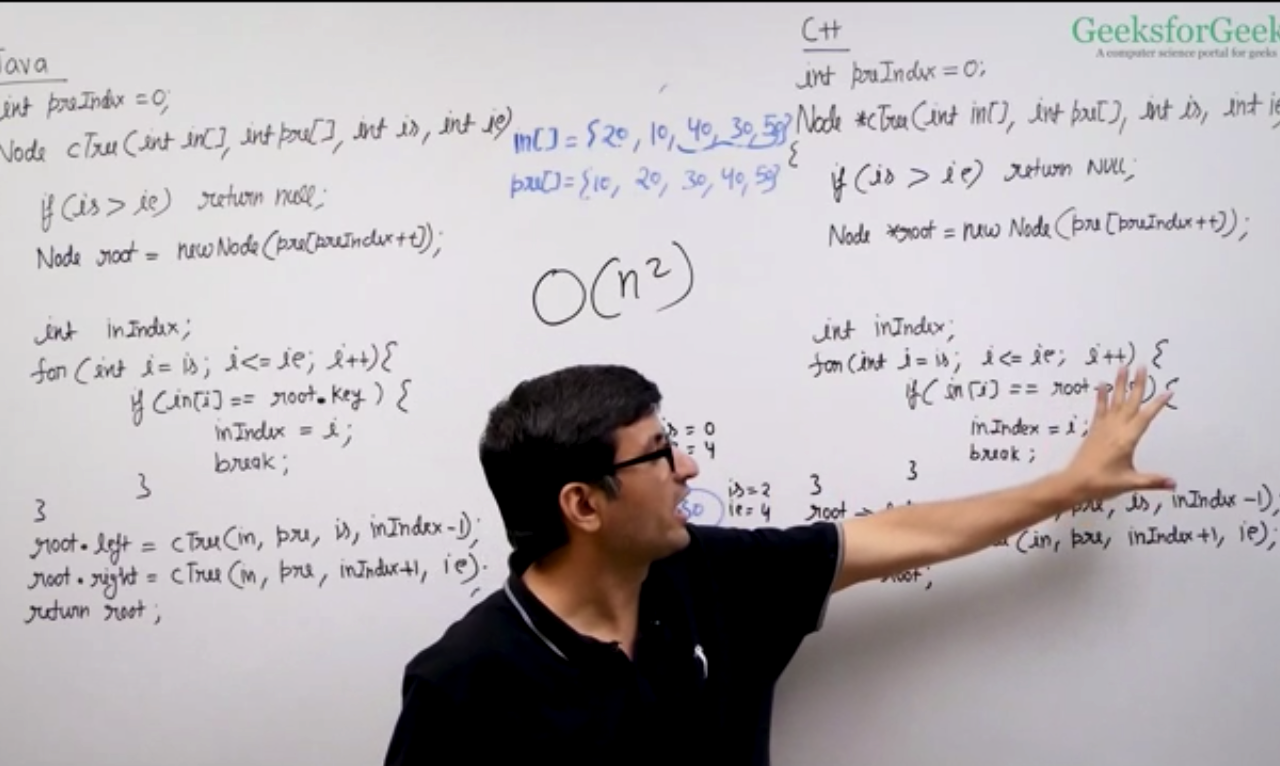 Java
int preIndex = 0;
Node cTree(int in[], int pre[], int is, int ie)
if (is > ie) return null;
Node root = new Node(pre[preIndex++]);
int inIndex;
for (int i = is; i <= ie; i++) {
if (in[i] == root.key) {
inIndex = i;
break;
}
}
root.left = cTree(in, pre, is, inIndex-1);
root.right = cTree(in, pre, inIndex+1, ie);
return root;
in[] = {20, 10, 40, 30, 50}
pre[] = {10, 20, 30, 40, 50}
O(n²)
is = 0
= 4
is = 2
ie = 4
50
GeeksforGeek
A computer science portal for geeks
C++
int preIndex = 0;
Node *cTree(int in[], int pre[], int is, int ie
{
if (is > ie) return NULL;
Node *root = new Node(pre[preIndex++]);
int inIndex;
for (int i = is; i <= ie; i++) {
if (in[i] == root {
inIndex = i;
break;
}
}
root pre, is, inIndex-1),
(in, pre, inIndex+1, ie);
root;